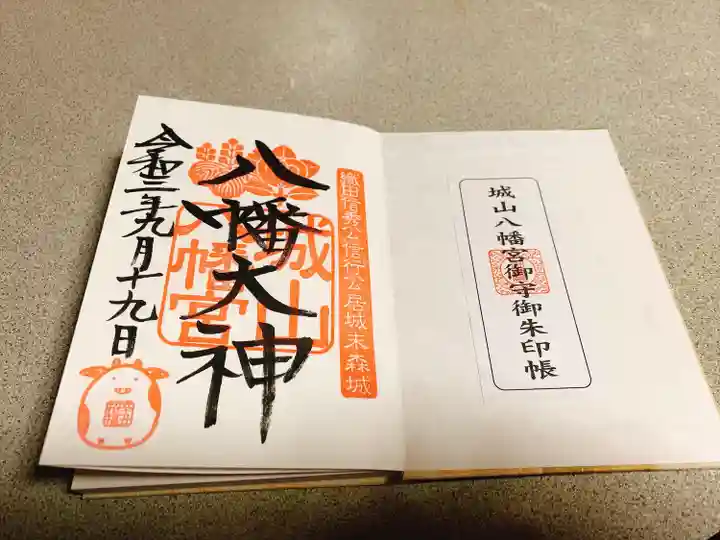 城山八幡宮御守御朱印帳
織田信秀公信行公居城末森城
八幡大神
城山
八幡宮
令和三年九月十九日